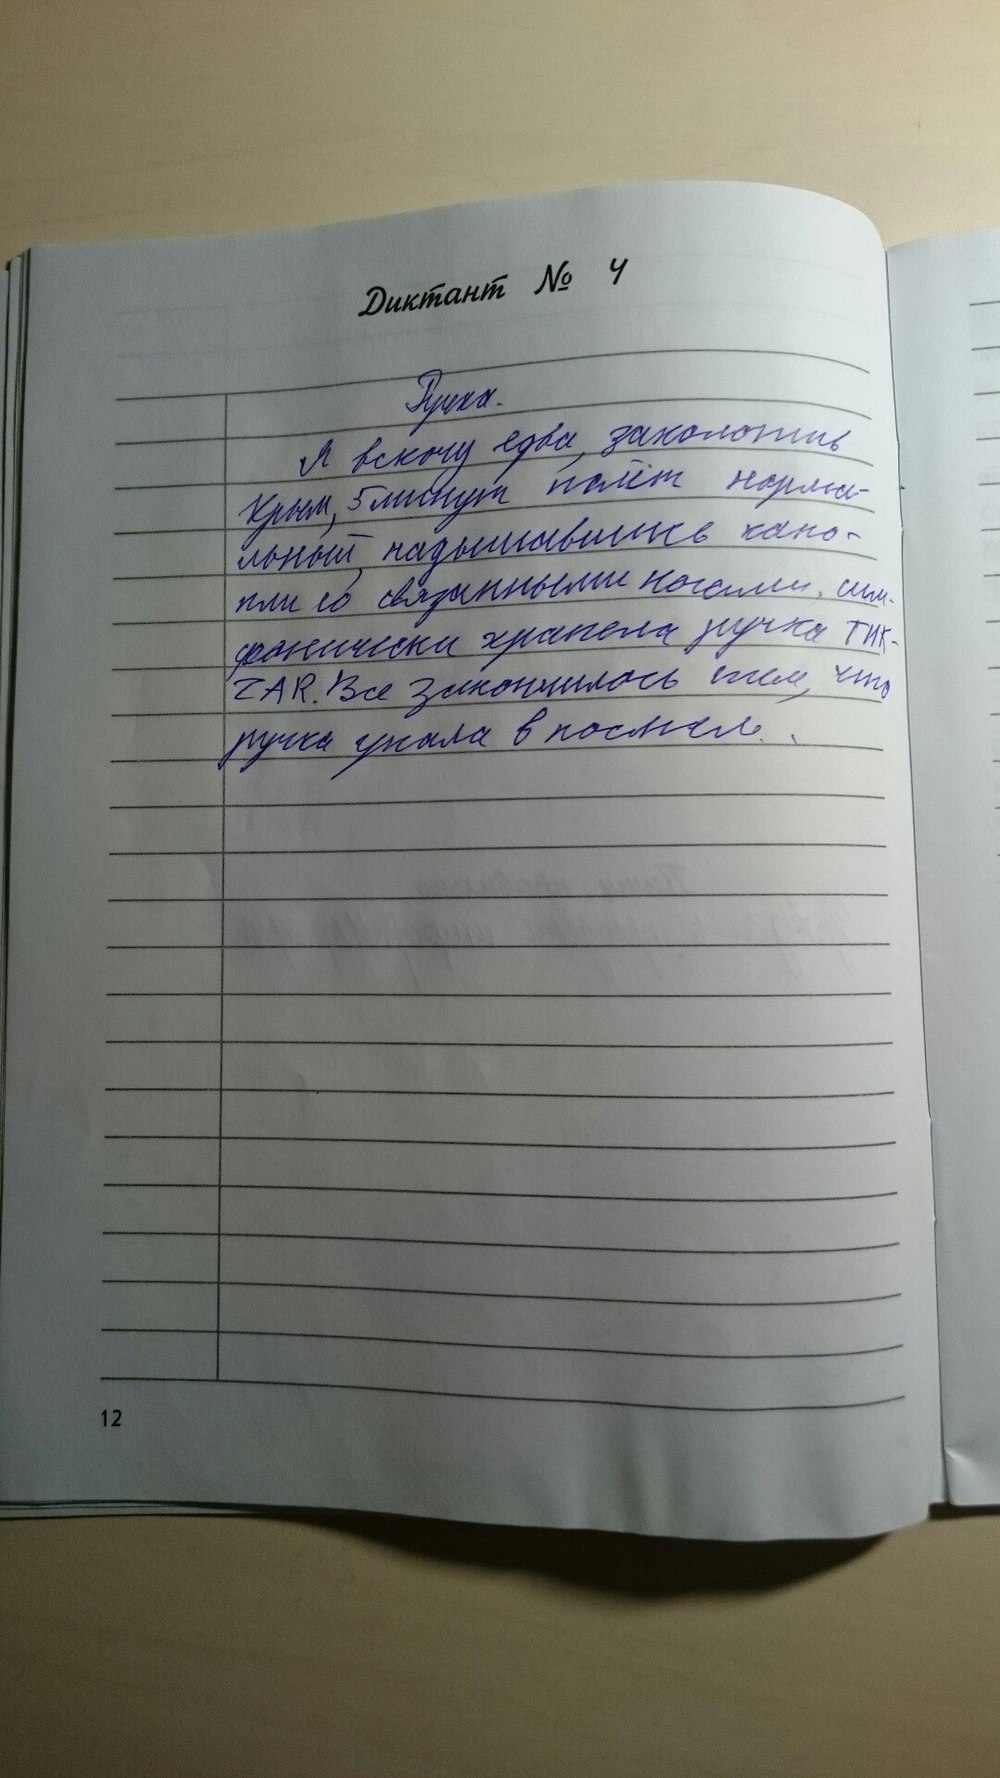 Диктант № 4
Ручка.
Я вскочу едва, заколотив
Крым, 5 минут полёт норма-
льный, надышавшись кано-
пли со связанными ногами, сим-
фонически храпела ручка ТИК-
ТАК. Все закончилось тем, что
ручка упала в постель.
12